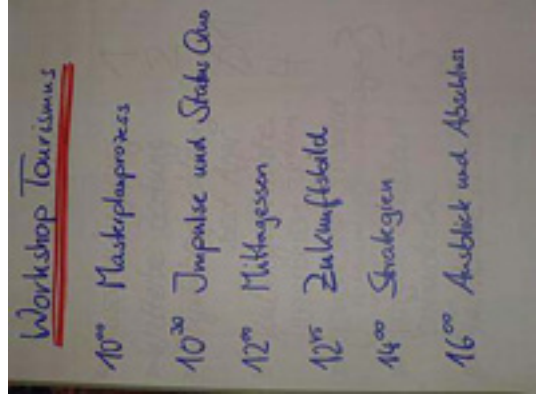 Workshop Tourismus
10⁰⁰ Masterplanprozess
10³⁰ Impulse und Status Quo
12⁰⁰ Mittagessen
12⁴⁵ Zukunftsbild
14⁰⁰ Strategien
16⁰⁰ Ausblick und Abschluss